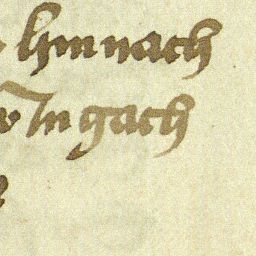 hin nach
In gach